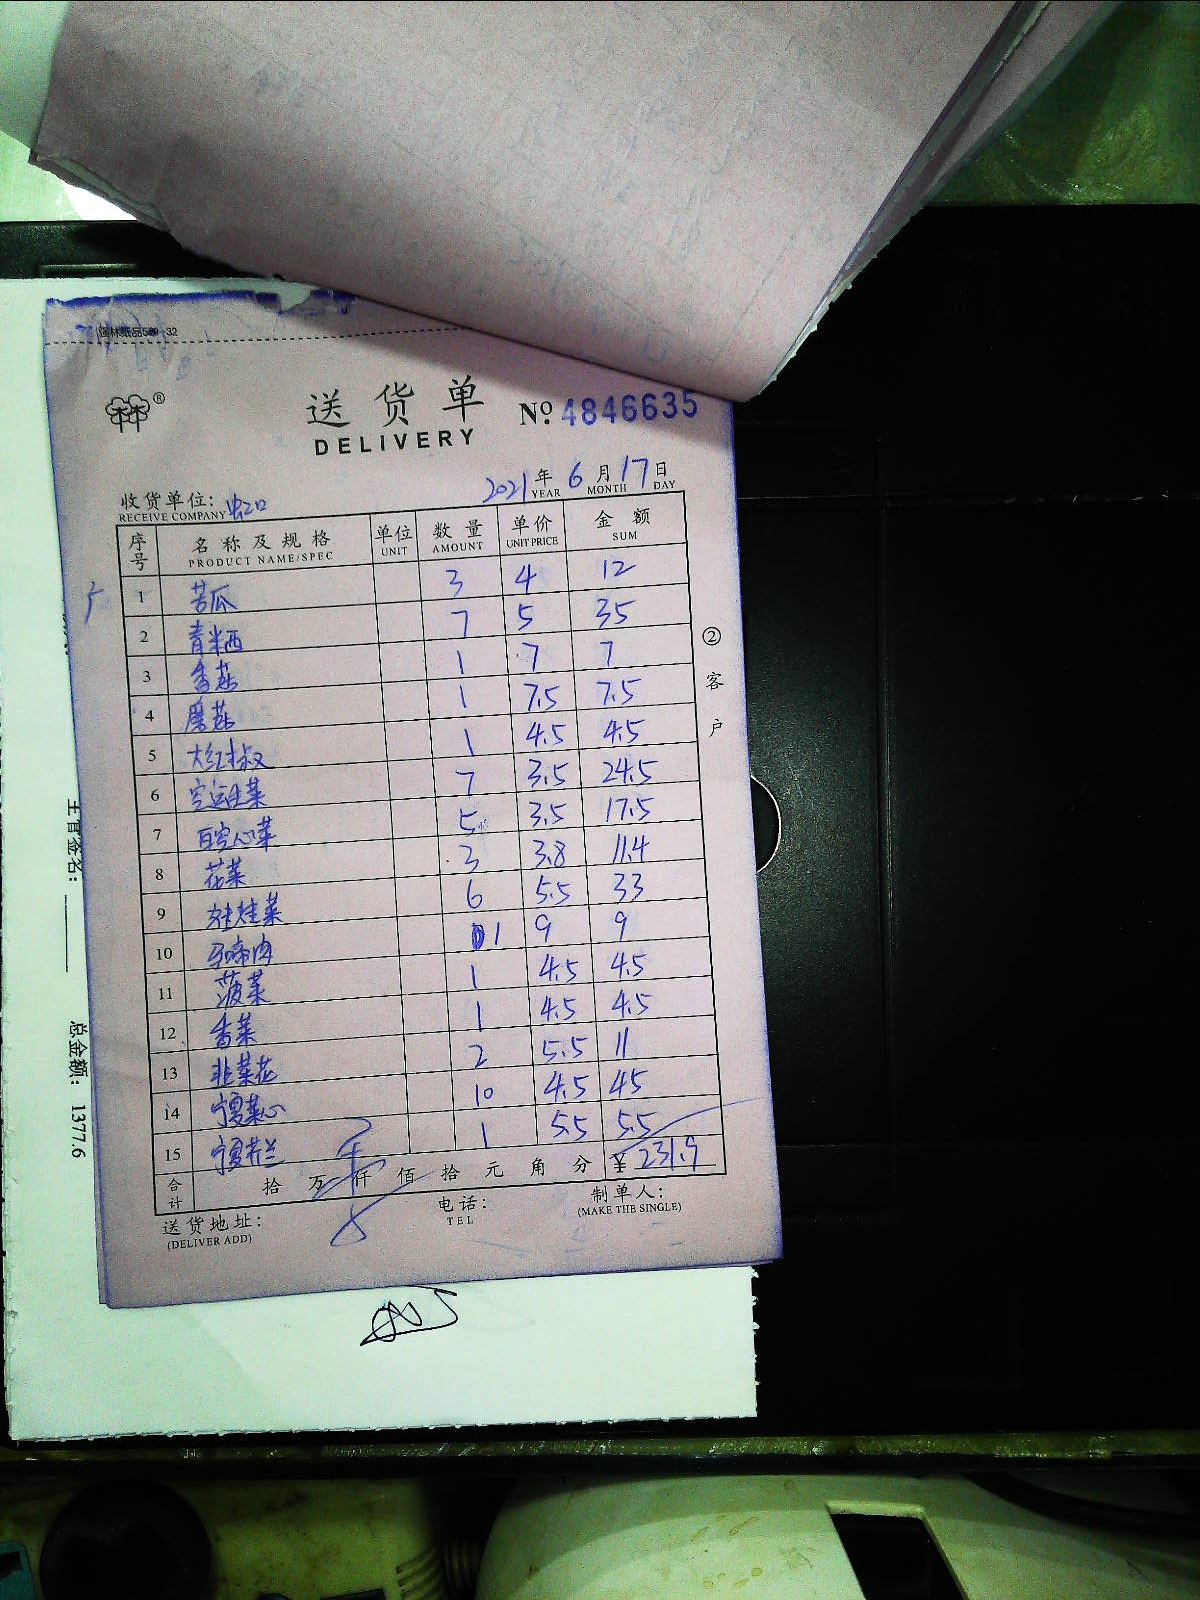 强林纸品589-32
林®
送货单
DELIVERY
No. 4846635
2021年6月17日
YEAR MONTH DAY
收货单位: 虹口
RECEIVE COMPANY
序号 名称及规格 单位 数量 单价 金额
PRODUCT NAME/SPEC UNIT AMOUNT UNIT PRICE SUM
1 苦瓜 3 4 12
2 青米西 7 5 35
3 香菇 1 7 7
4 磨菇 1 7.5 7.5
5 大红椒 1 4.5 4.5
6 空运生菜 7 3.5 24.5
7 百空心菜 5 3.5 17.5
8 花菜 3 3.8 11.4
9 娃娃菜 6 5.5 33
10 马啼肉 1 9 9
11 菠菜 1 4.5 4.5
12 香菜 1 4.5 4.5
13 韭菜花 2 5.5 11
14 宁夏菜心 10 4.5 45
15 宁夏芥兰 1 5.5 5.5
合计 拾 万 仟 佰 拾 元 角 分 ¥231.9
送货地址:
(DELIVER ADD)
电话:
TEL
制单人:
(MAKE THE SINGLE)
②客户
主管签名:
总金额: 1377.6